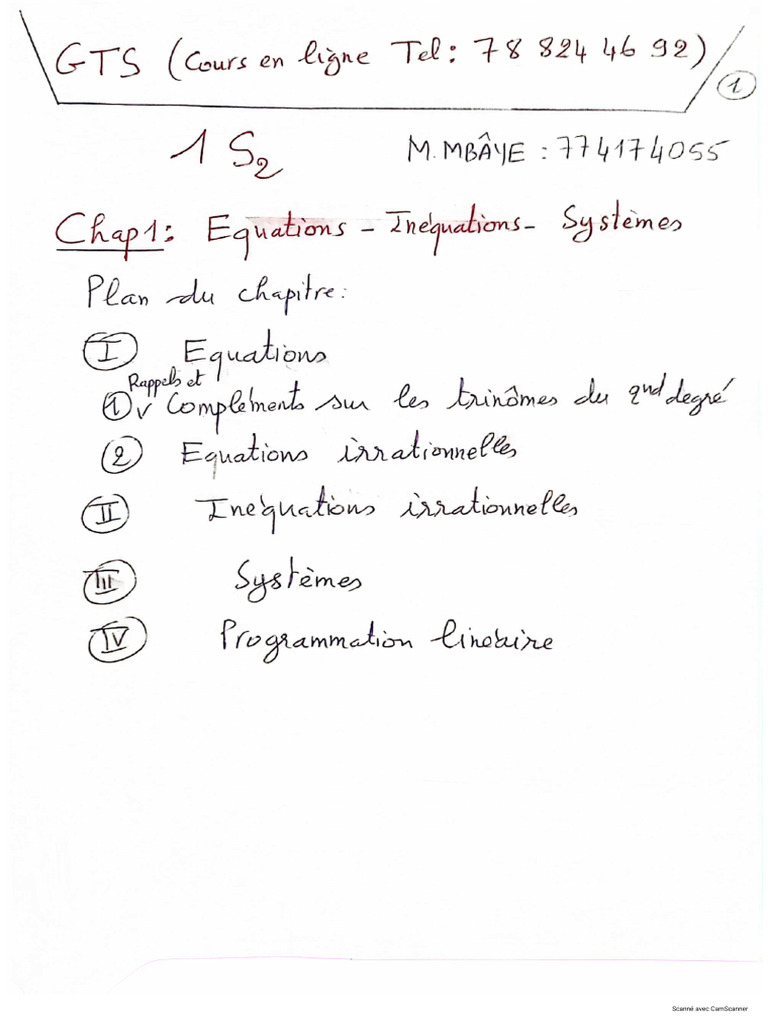 GTS (Cours en ligne Tel: 78 824 46 92)
1
1 S2
M. MBÂYE : 774174055
Chap1: Equations - Inéquations - Systèmes
Plan du chapitre:
I Equations
Rappels et
1 Compléments sur les trinômes du 2nd degré
2 Equations irrationnelles
II Inéquations irrationnelles
III Systèmes
IV Programmation linéaire
Scanné avec CamScanner